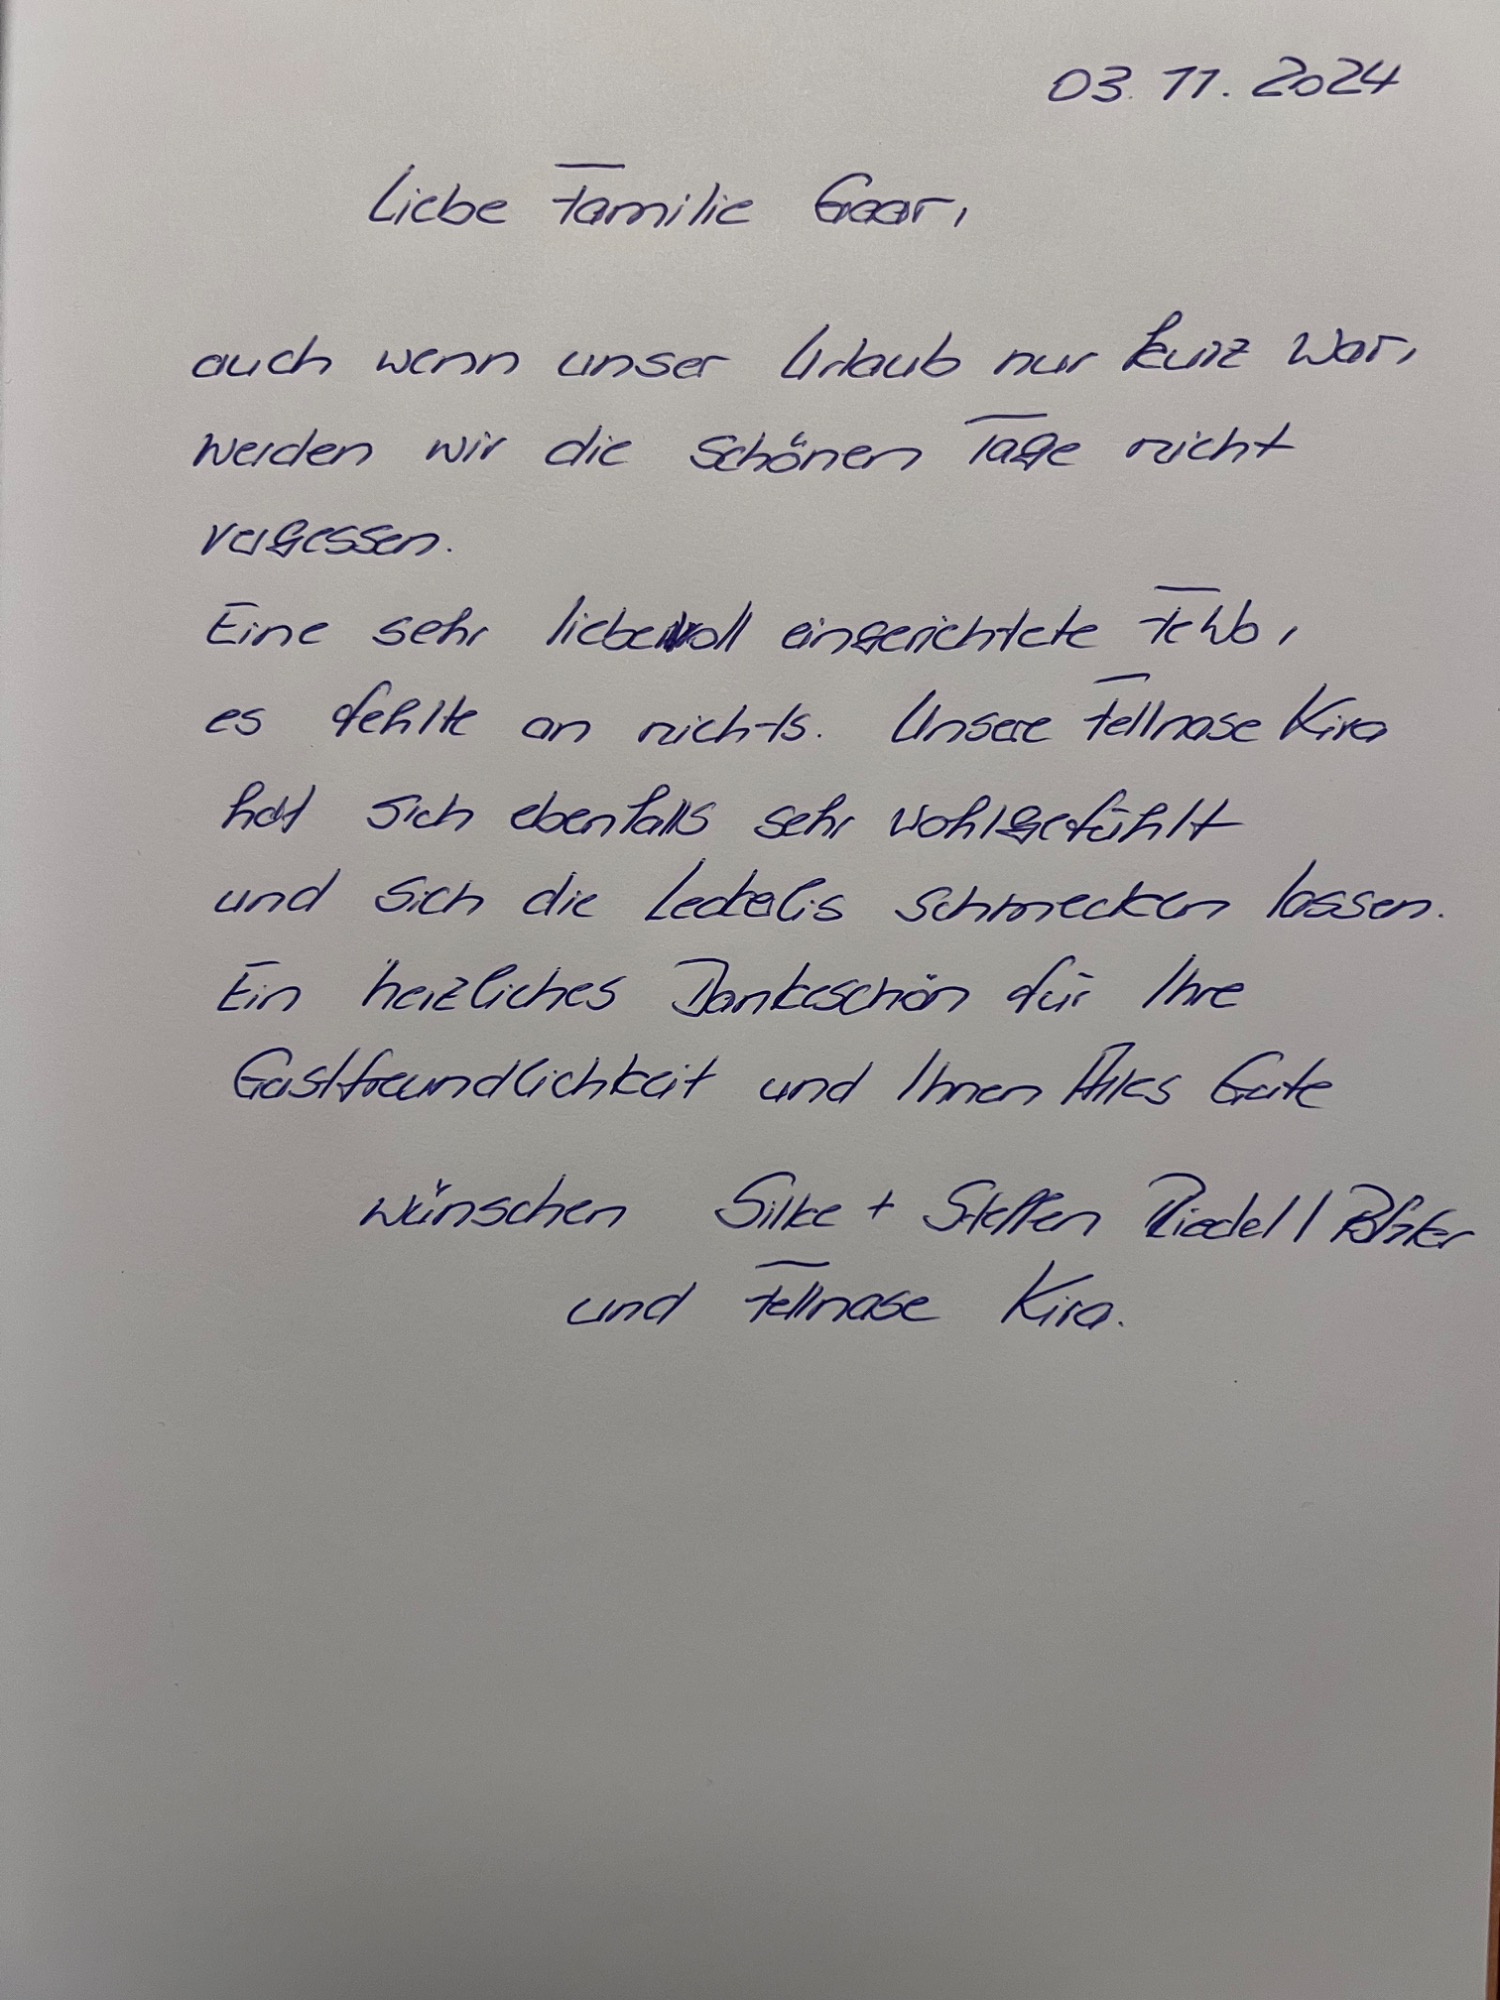 03.11.2024
Liebe Familie Gaar,
auch wenn unser Urlaub nur kurz war,
werden wir die schönen Tage nicht
vergessen.
Eine sehr liebevoll eingerichtete FeWo,
es fehlte an nichts. Unsere Fellnase Kira
hat sich ebenfalls sehr wohlgefühlt
und sich die Leckerlis schmecken lassen.
Ein herzliches Dankeschön für Ihre
Gastfreundlichkeit und Ihnen Alles Gute
wünschen Silke + Steffen Riedel /
und Fellnase Kira.